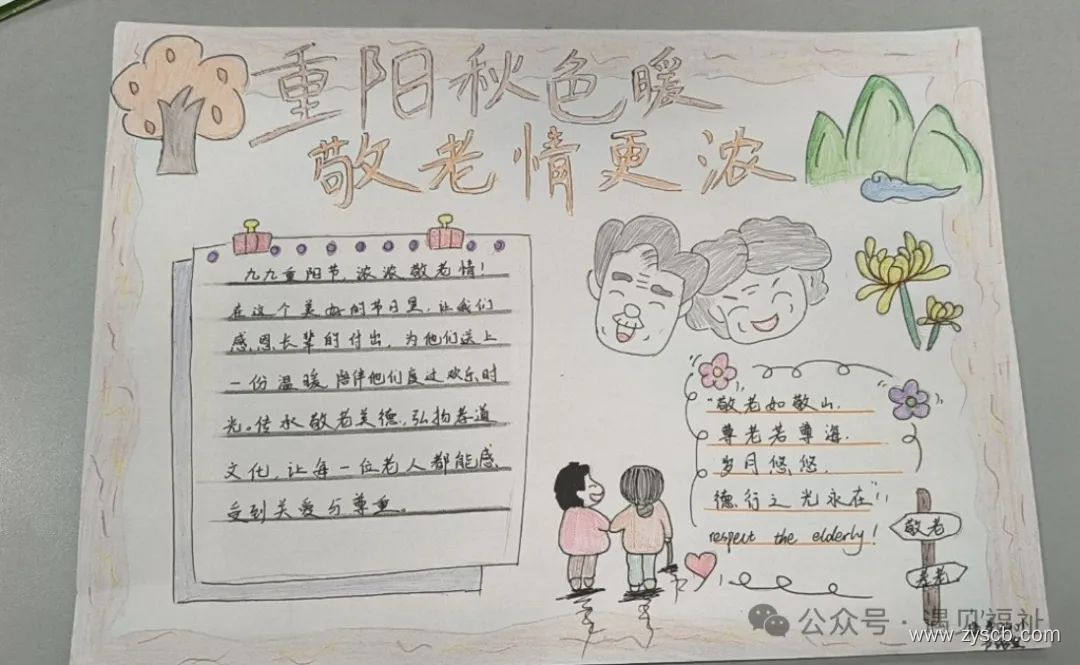 重阳秋色暖
敬老情更浓
九九重阳节,浓浓敬老情!
在这个美好的节日里,让我们
感恩长辈的付出,为他们送上
一份温暖陪伴他们度过欢乐时
光。传承敬老美德,弘扬孝道
文化,让每一位老人都能感
受到关爱与尊重。
"敬老如敬山,
尊老若尊海,
岁月悠悠,
德行之光永在"
respect the elderly!
敬老
公众号·遇见福祉
www.zyscb.com